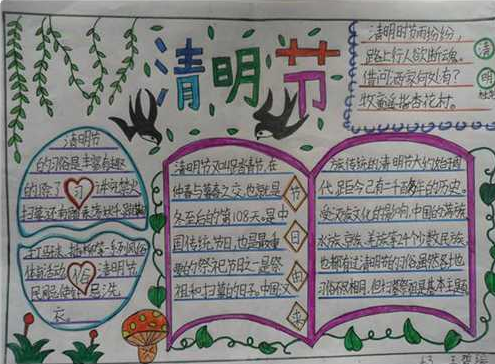 清明节
清明时节雨纷纷，
路上行人欲断魂。
借问酒家何处有？
牧童遥指杏花村。
清明
清明节
的习俗是丰富有趣
的除了 讲究禁火
习
扫墓还有踏青荡秋千
打马球、插柳等一系列风俗
体育活动 清明节
俗
清明节又叫踏青节,在
仲春与暮春之交,也就是
冬至后的第108天。是中
国传统节日,也是最重
要的祭祀节日之一是祭
祖和扫墓的日子。中国汉
节
日
由
来
族传统的清明节大约始于周
代,距今已有二千五百多年的历史。
受汉族文化的影响,中国的满族、
水族、京族、羌族等24个少数民族
也都有过清明节的习俗虽然各地
习俗不尽相同,但扫墓祭祖是基本主题。